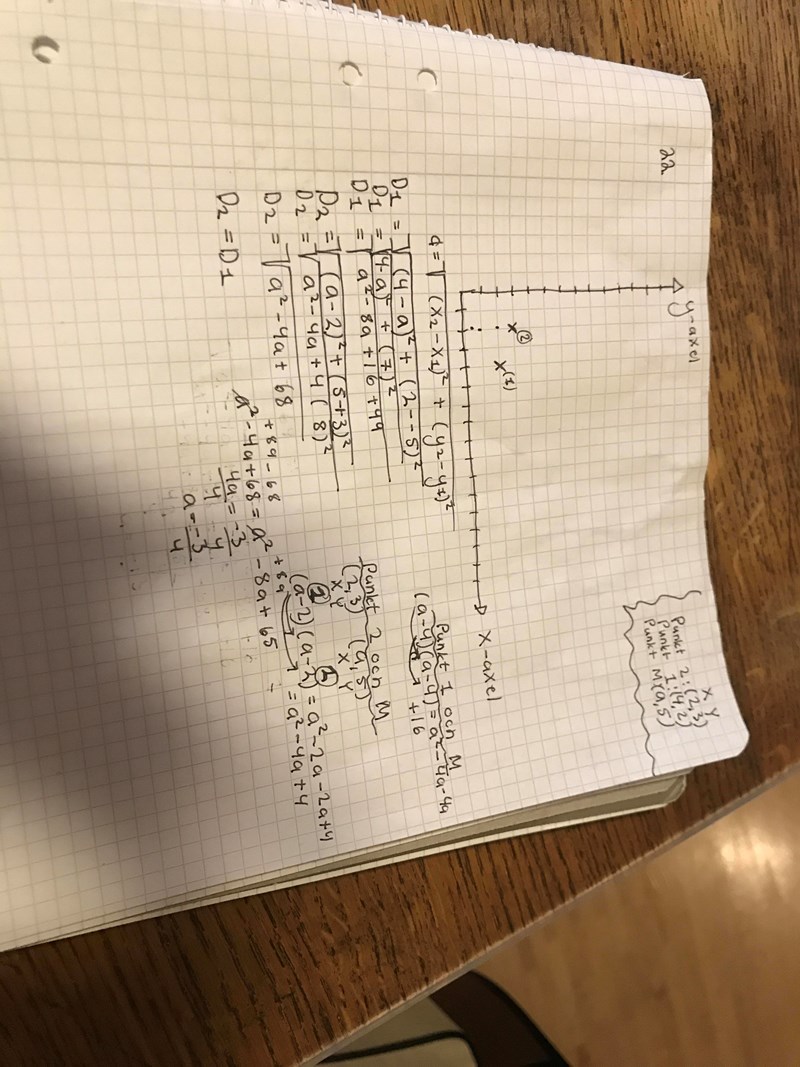 22
y-axel
x②
x(1)
x-axel
X Y
Punkt 2: (2,3)
Punkt 1: (4,2)
Punkt M: (a,5)
d = √(x2-x1)² + (y2-y1)²
D1 = √(4-a)² + (2--5)²
D1 = √4-a² + (7)²
D1 = √a²-8a+16+49
D2 = √(a-2)² + (5+3)²
D2 = √a²-4a+4 (8)²
D2 = √a²-4a+68
D2 = D1
Punkt 1 och M
(a-4)(a-4) = a²-4a-4a
+16
Punkt 2 och M
(2,3) (a,5)
X Y X Y
(a-2)(a-2) = a²-2a-2a+4
= a²-4a+4
+8a-68 +8a
a²-4a+68 = a²-8a+65
4a = -3
4 4
a = -3
4